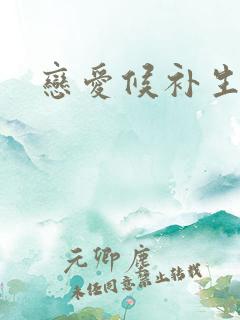 戀愛候补生
元卿塵
未经同意禁止转载